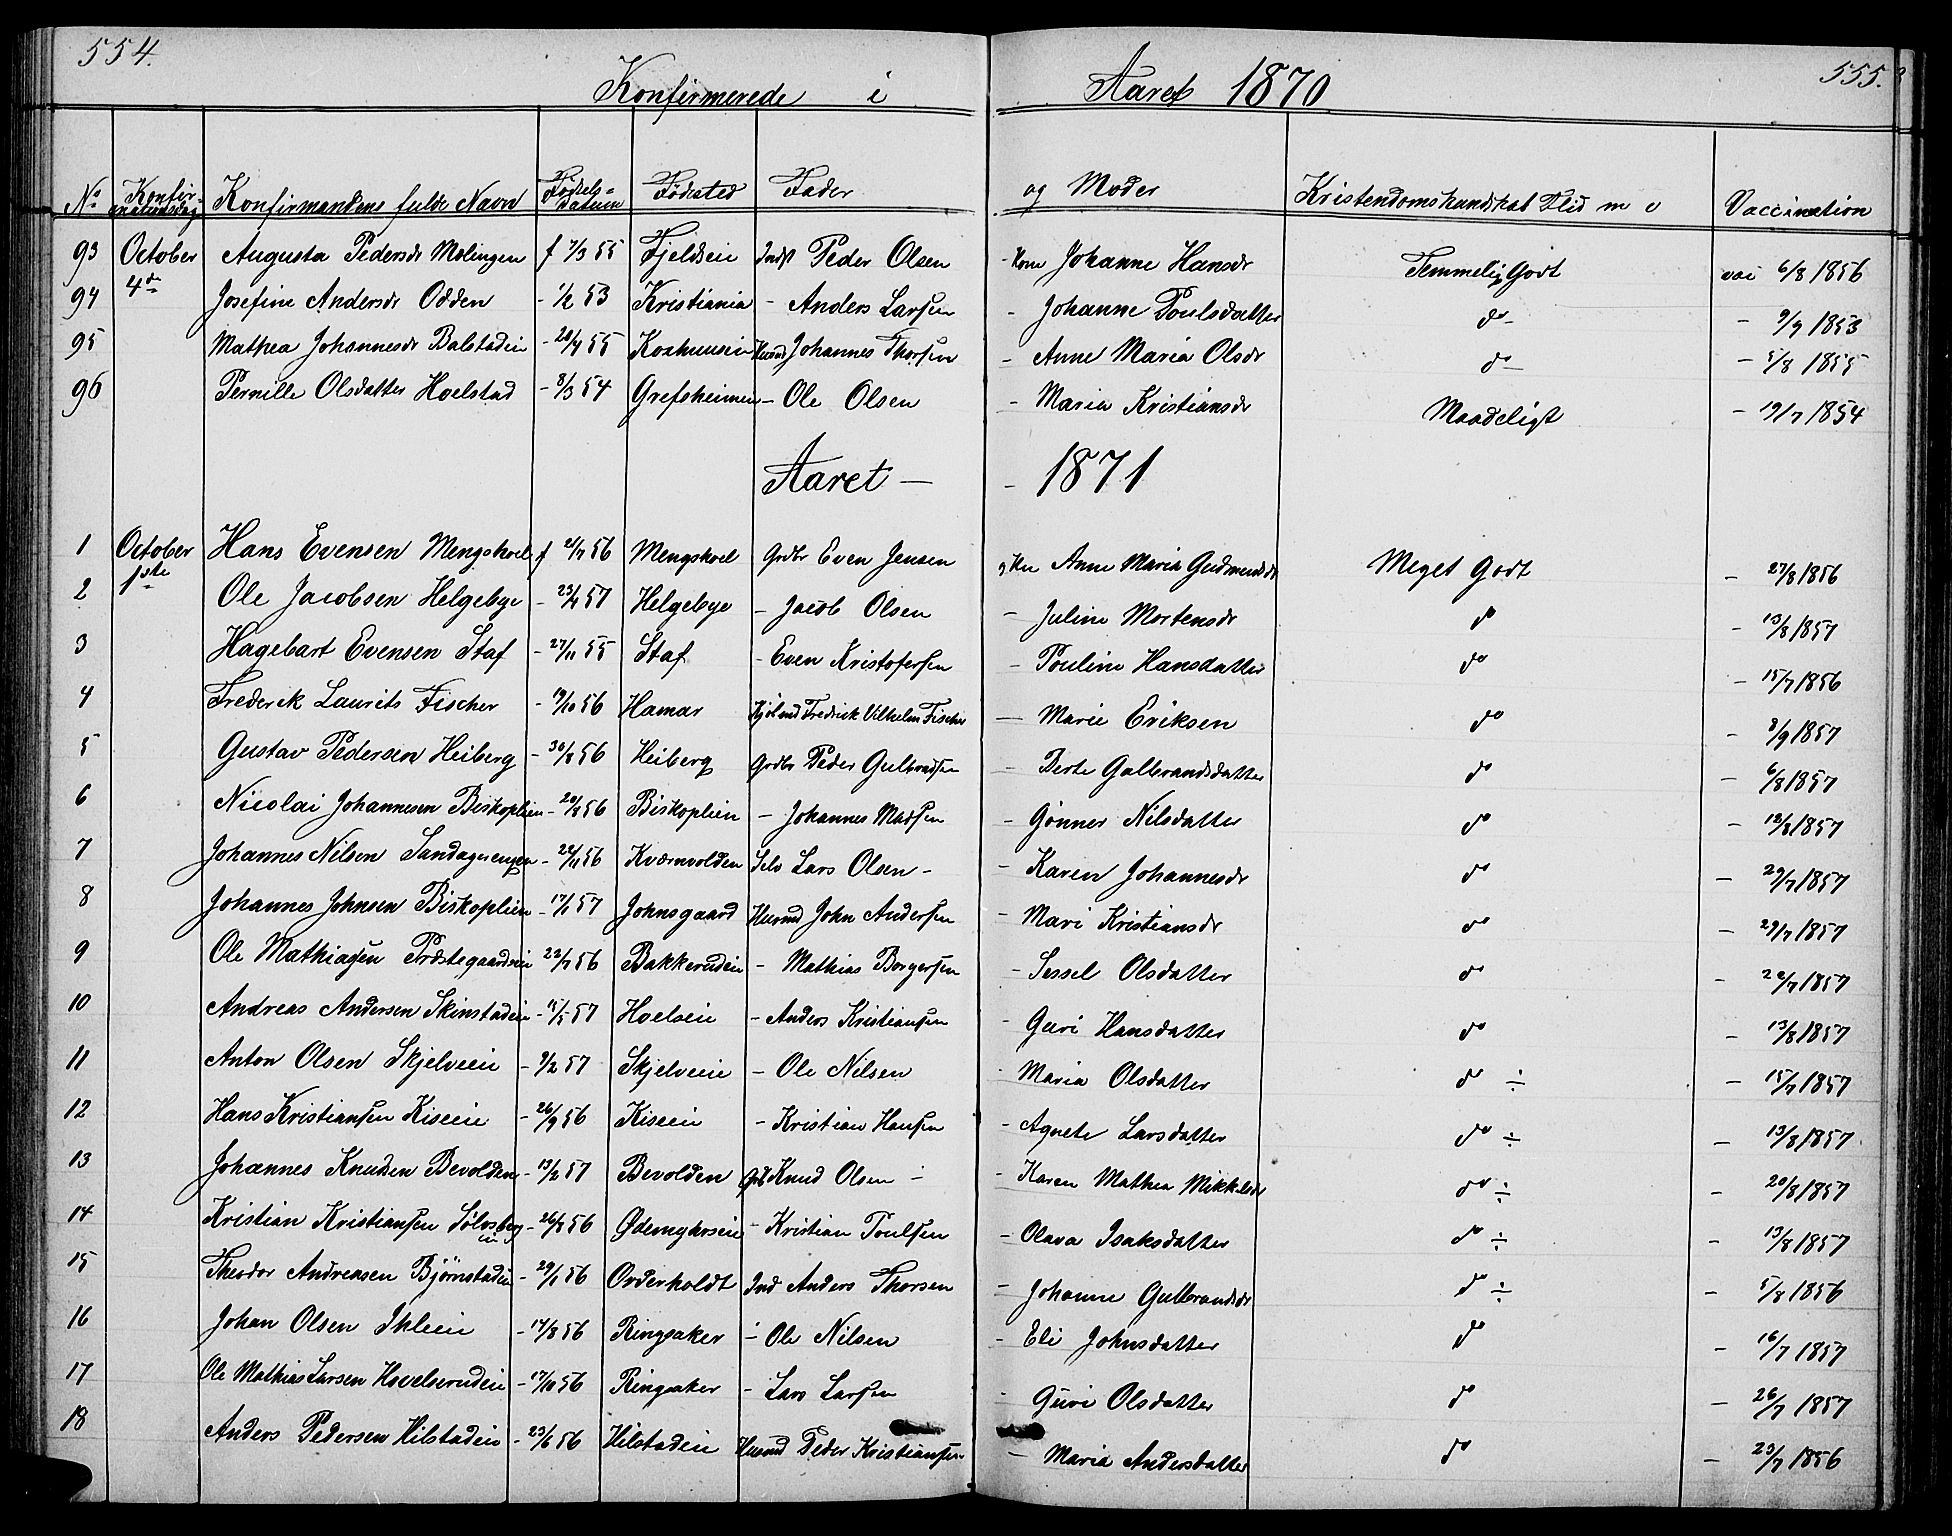 554.
555.
Konfirmerede i Aaret 1870
No Konfirmationsdag Konfirmandens fulde Navn Fødselsdatum Fødsted Fader og Moder Kristendomskundskab Flid m v Vaccination
93 October Augusta Pedersdr Mælingen f 7/3 55 Fjeldseie Inds Peder Olsen - Kone Johanne Hansdr Temmelig Godt vac 6/8 1856
94 4de Josefine Andersdr Odden - 1/2 53 Kristiania - Anders Larsen - Johanne Poulsdatter do - - 9/9 1853
95 Mathea Johannesdr Balstadeie - 20/4 55 Johannes Thorsen - Anne Maria Olsdr do - - 5/8 1855
96 Pernille Olsdatter Hoelstad - 8/3 54 Grefsheimeie - Ole Olsen - Maria Kristiansdr Maadeligt - 19/7 1854
Aaret - - 1871
1 October Hans Evensen Mengshoel f 21/7 56 Mengshoel Grdbr Even Jensen Anne Maria Gudmundsdr Meget Godt - 27/8 1856
2 1ste Ole Jacobsen Helgebye - 23/4 57 Helgebye - Jacob Olsen - Juline Mortensdr do - 13/8 1857
3 Hagebart Evensen Staf - 27/11 55 Staf - Even Kristofersen - Pouline Hansdatter do - 15/7 1856
4 Frederik Laurits Fischer - 19/10 56 Hamar Fredrik Vilhelm Fischer - Marie Eriksen do - 8/9 1857
5 Gustav Pedersen Heiberg - 30/8 56 Heiberg Grdbr Peder Gulbrandsen - Berte Gulbrandsdatter do - 6/8 1857
6 Nicolai Johannesen Biskoplien - 20/8 56 Biskoplien - Johannes Madsen - Gønner Nilsdatter do - 12/8 1857
7 Johannes Nilsen - 24/11 56 Kværnvolden Selv Lars Olsen - - Karen Johannesdr do - 29/7 1857
8 Johannes Johnsen Biskoplien - 17/1 57 Johnsgaard Husmd John Andersen - Mari Kristiansdr do - 29/7 1857
9 Ole Mathiasen Præstegaardseie 22/7 56 Bakkerudeie - Mathias Borgersen - Sessel Olsdatter do - 22/7 1857
10 Andreas Andersen Skinstadeie - 15/5 57 Hoelseie - Anders Kristiansen - Guri Hansdatter do - 13/8 1857
11 Anton Olsen Skjelveeie - 9/2 57 Skjelveeie - Ole Nilsen - Maria Olsdatter do ÷ - 15/7 1857
12 Hans Kristiansen Kiseeie - 26/9 56 Kiseeie - Kristian Hansen - Agnete Larsdatter do ÷ - 13/8 1857
13 Johannes Knudsen Bevolden - 13/2 57 Bevolden Knud Olsen - - Karen Mathea Mikkelsdr do ÷ - 20/8 1857
14 Kristian Kristiansen Sølvsbergeie - 26/8 56 - Kristian Poulsen - Olava Isaksdatter do ÷ - 13/8 1857
15 Theodor Andreasen Bjørnstadeie - 29/1 56 Orderholdt Ind Anders Thorsen - Johanne Gulbrandsdr do ÷ - 5/8 1856
16 Johan Olsen Ihleeie - 17/8 56 Ringsaker - Ole Nilsen - Eli Johnsdatter do - 16/7 1857
17 Ole Mathias Larsen Hovelserudeie - 17/10 56 Ringsaker - Lars Larsen - Guri Olsdatter do - 26/7 1857
18 Anders Pedersen Hilstadeie - 23/6 56 Hilstadeie Husmd Peder Kristiansen - Maria Andersdatter do - 23/7 1856